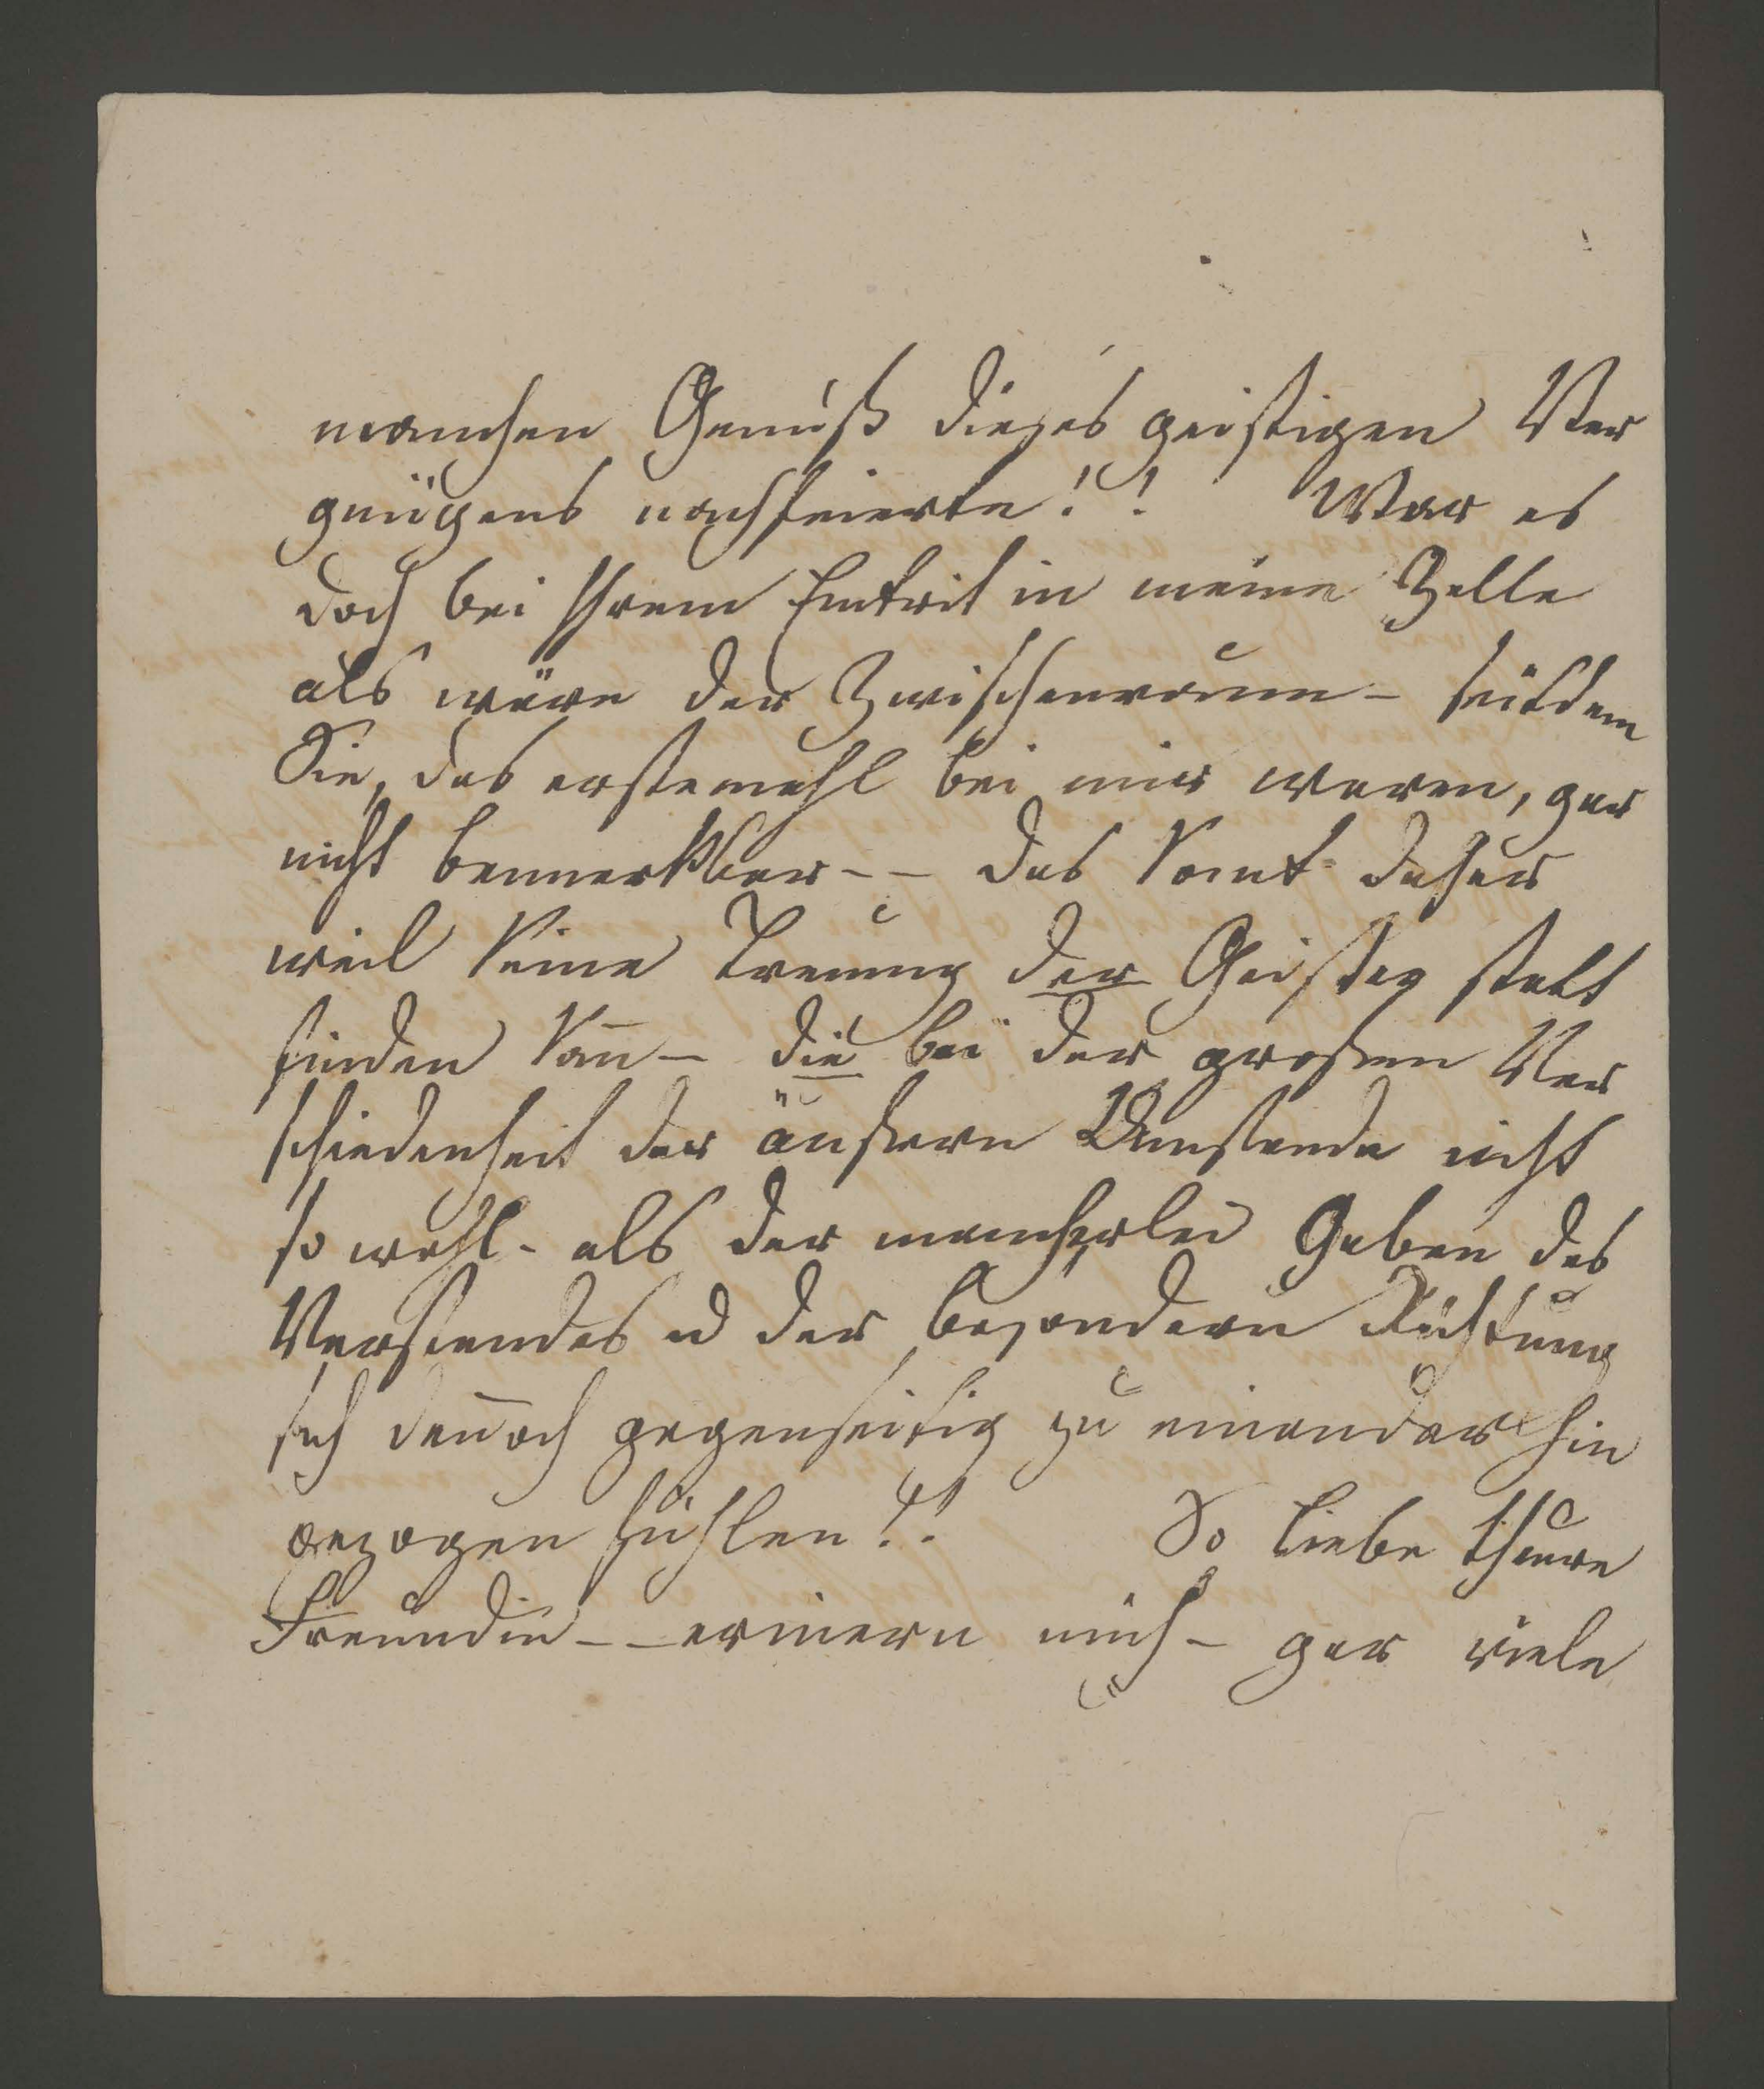 manchen Genuß dieses geistigen Ver
gnügens nachfeierte!! War es
doch bei Ihrem Eintrit in meine Zelle
als wäre der Zwischenraum – seitdem
Sie, das erstemahl bei mir waren, gar
nicht bemerkbar – – das komt daher
weil keine Trenung der Geister statt
finden kan̄ – die bei der großen Ver
schiedenheit der äußern Umstende nicht
so wohl – als der mancherlei Gaben des
Verstandes u der besondern Richtung
sich den̄och gegenseitig zu einander hin
gezogen fühlen!! So liebe theure
Freundin – – erinern mich – gar viele